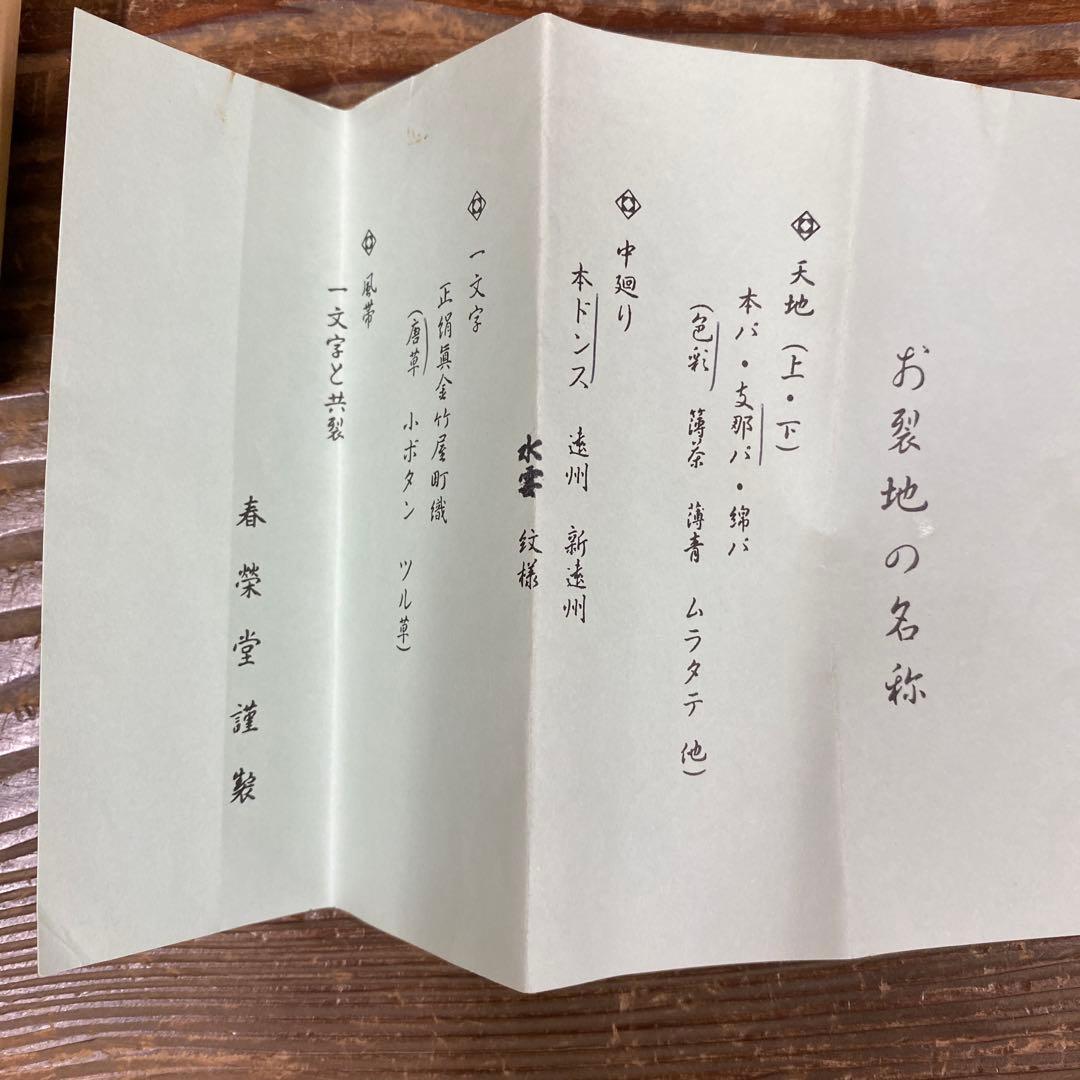 お裂地の名称
天地(上・下)
本パ・支那パ・綿パ
(色彩 薄茶 薄青 ムラタテ 他)
中廻り
本ドンス 遠州 新遠州
水雲 紋様
一文字
正絹眞金竹屋町織
(唐草 小ボタン ツル草)
風帯
一文字と共裂
春榮堂謹製